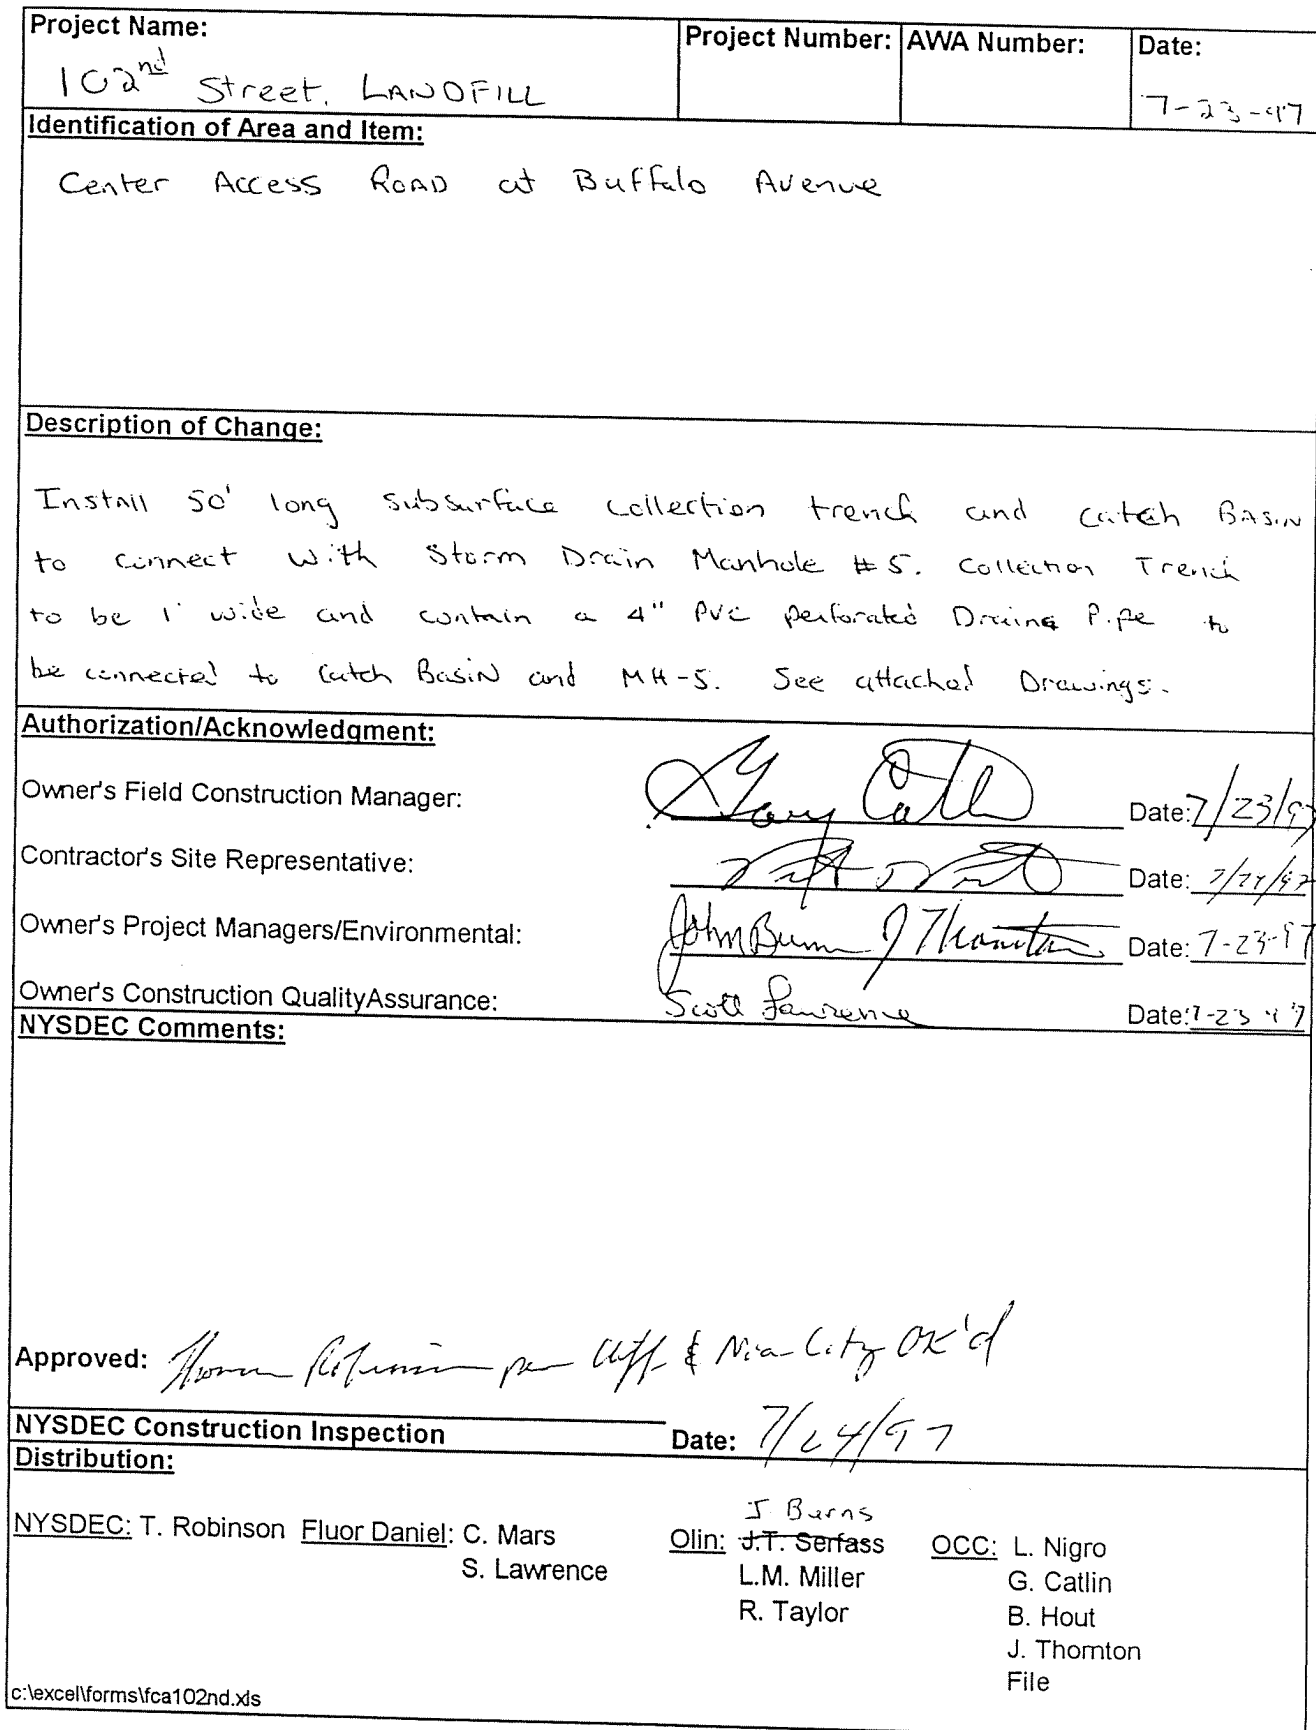 Project Name:
102nd Street. LANDFILL
Project Number:
AWA Number:
Date:
7-23-97
Identification of Area and Item:
Center Access ROAD at Buffalo Avenue
Description of Change:
Install 50' long subsurface collection trench and catch BASIN
to connect with Storm Drain Manhole #5. Collection Trench
to be 1' wide and contain a 4" PVC perforated Draing Pipe to
be connected to Catch BasiN and MH-5. See attached Drawings.
Authorization/Acknowledgment:
Owner's Field Construction Manager: Gary Catlin Date: 7/23/97
Contractor's Site Representative: Date: 7/24/97
Owner's Project Managers/Environmental: John Burns J Thornton Date: 7-23-97
Owner's Construction QualityAssurance: Scott Lawrence Date: 7-23-97
NYSDEC Comments:
Approved: Thomas Robinson per Cliff & Nia-City OK'd
NYSDEC Construction Inspection Date: 7/24/97
Distribution:
J Burns
NYSDEC: T. Robinson Fluor Daniel: C. Mars Olin: J.T. Serfass OCC: L. Nigro
S. Lawrence L.M. Miller G. Catlin
R. Taylor B. Hout
J. Thornton
File
c:\excel\forms\fca102nd.xls